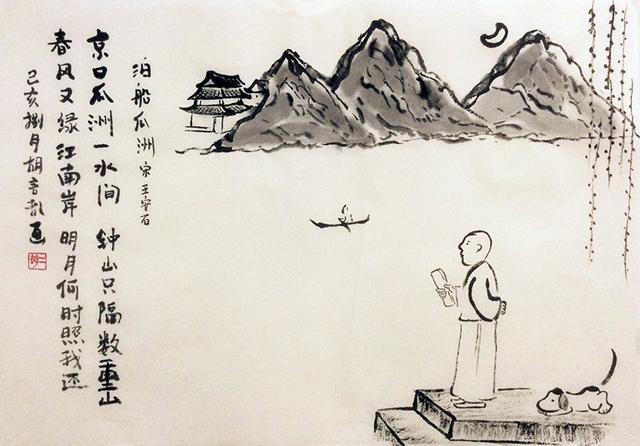 泊船瓜洲 宋 王安石
京口瓜洲一水间 钟山只隔数重山
春风又绿江南岸 明月何时照我还
己亥捌月胡 画